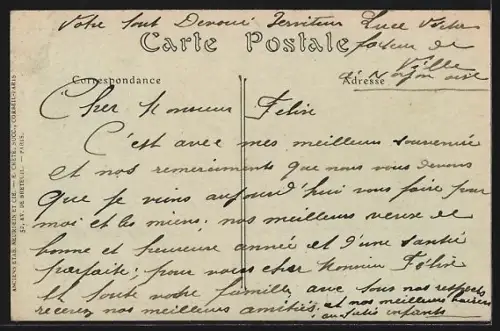 Votre tout Devoué Serviteur Luce
facteur de
Ville
à Noyon oise
Carte Postale
Correspondance
Adresse
Cher Monsieur Félix
C'est avec mes meilleurs souvenirs
et nos remerciments que nous vous devons
que je viens aujourd'hui vous faire pour
moi et les miens; nos meilleurs vœux de
bonne et heureuse année et d'une santé
parfaite; pour vous cher Monsieur Félix
et toute votre famille avec tous nos respects
recevez nos meilleurs amitiés; et nos meilleurs baisers
aux petits enfants
ANCIENS ETAB. NEURDEIN ET CIE. — E. CRÉTÉ, SUCC., CORBEIL-PARIS
52, AV. DE BRETEUIL. — PARIS.